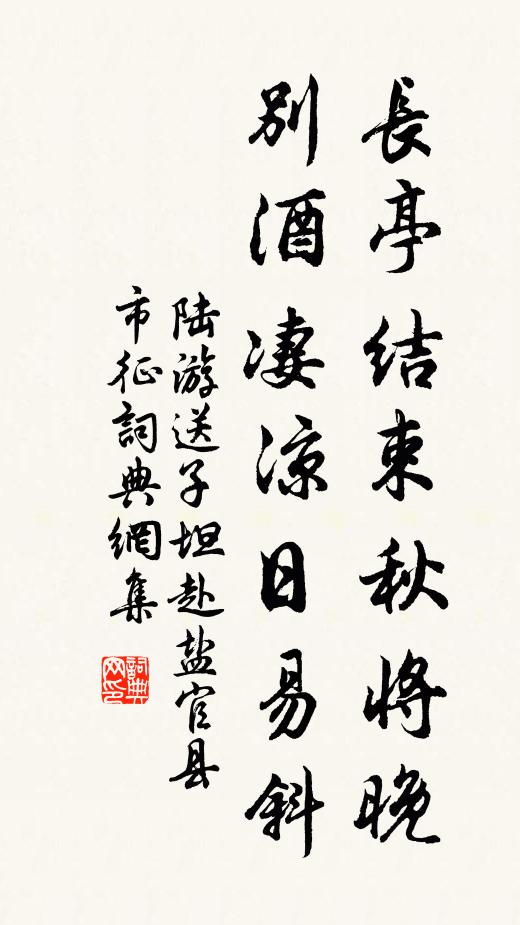 長亭結束秋將晚
別酒凄涼日易斜
陆游送子坦赴盐官县
市征詞典網集
詞典网印